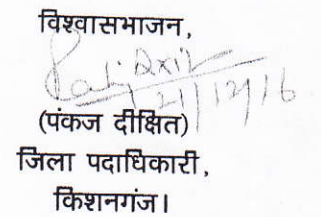 विश्वासभाजन,
21/12/16
(पंकज दीक्षित)
जिला पदाधिकारी,
किशनगंज।